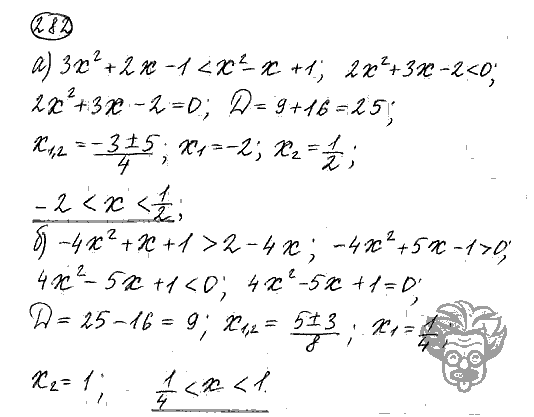 282
а) 3x² + 2x - 1 < x² - x + 1; 2x² + 3x - 2 < 0;
2x² + 3x - 2 = 0; D = 9 + 16 = 25;
x₁,₂ = (-3 ± 5)/4; x₁ = -2; x₂ = 1/2;
-2 < x < 1/2;
б) -4x² + x + 1 > 2 - 4x; -4x² + 5x - 1 > 0;
4x² - 5x + 1 < 0; 4x² - 5x + 1 = 0;
D = 25 - 16 = 9; x₁,₂ = (5 ± 3)/8; x₁ = 1/4;
x₂ = 1; 1/4 < x < 1